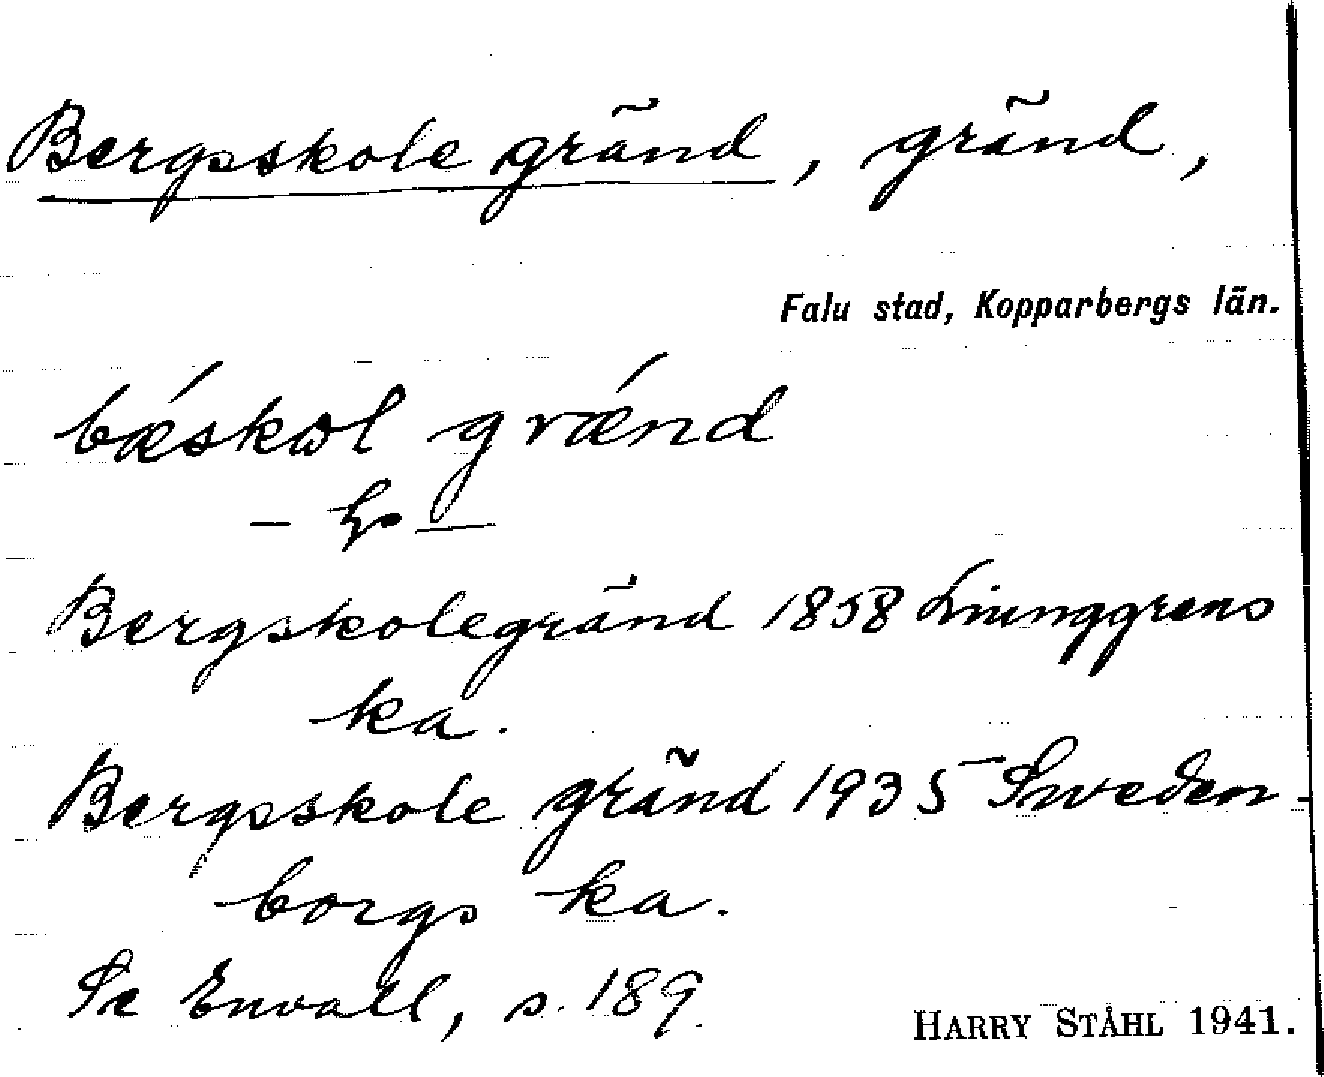 Bergsskole gränd, gränd,
Falu stad, Kopparbergs län.
bǽskωl grǽnd
Bergskolegränd 1858 Ljunggrens
ka.
Bergsskole gränd 1935 Sweden-
borgs ka.
Se Envall, s. 189.
HARRY STÅHL 1941.